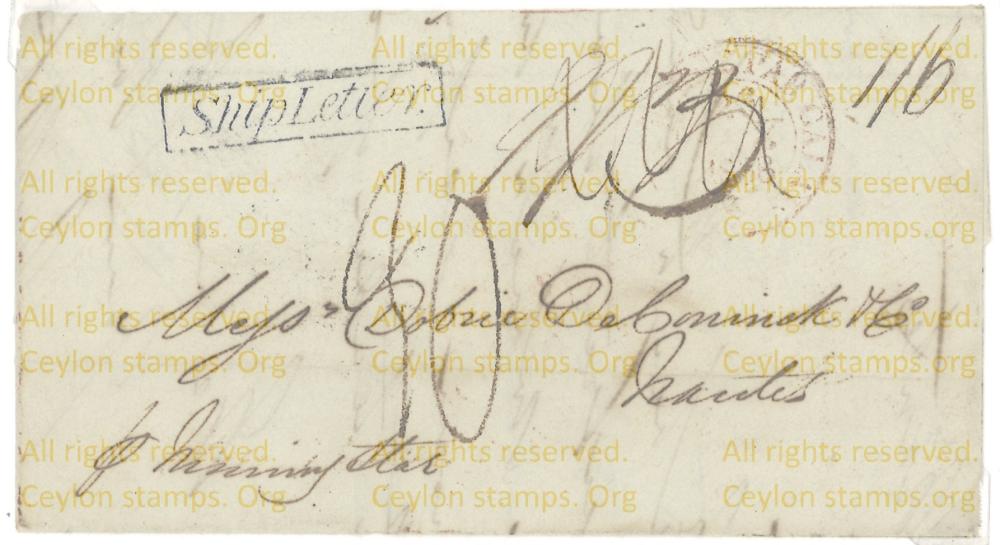 All rights reserved. All rights reserved. All rights reserved.
Ceylon stamps. Org Ceylon stamps. Org Ceylon stamps. Org
Ship Letter.
1/6
All rights reserved. All rights reserved. All rights reserved.
Ceylon stamps. Org Ceylon stamps. Org Ceylon stamps. Org
30
Messrs Dobrie DeConinck & Co
Nantes
All rights reserved. All rights reserved. All rights reserved.
Ceylon stamps. Org Ceylon stamps. Org Ceylon stamps. Org
p Morning Star
All rights reserved. All rights reserved. All rights reserved.
Ceylon stamps. Org Ceylon stamps. Org Ceylon stamps. Org